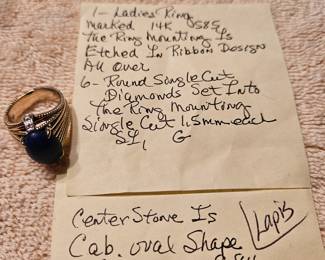 1 - Ladies' Ring
Marked 14K 585
The Ring Mounting Is
Etched In Ribbon Design
All Over
6 - Round Single Cut
Diamonds Set Into
The Ring Mounting
Single Cut 1.5mm each
SI1 G
Center Stone Is
Lapis
Cab. oval Shape